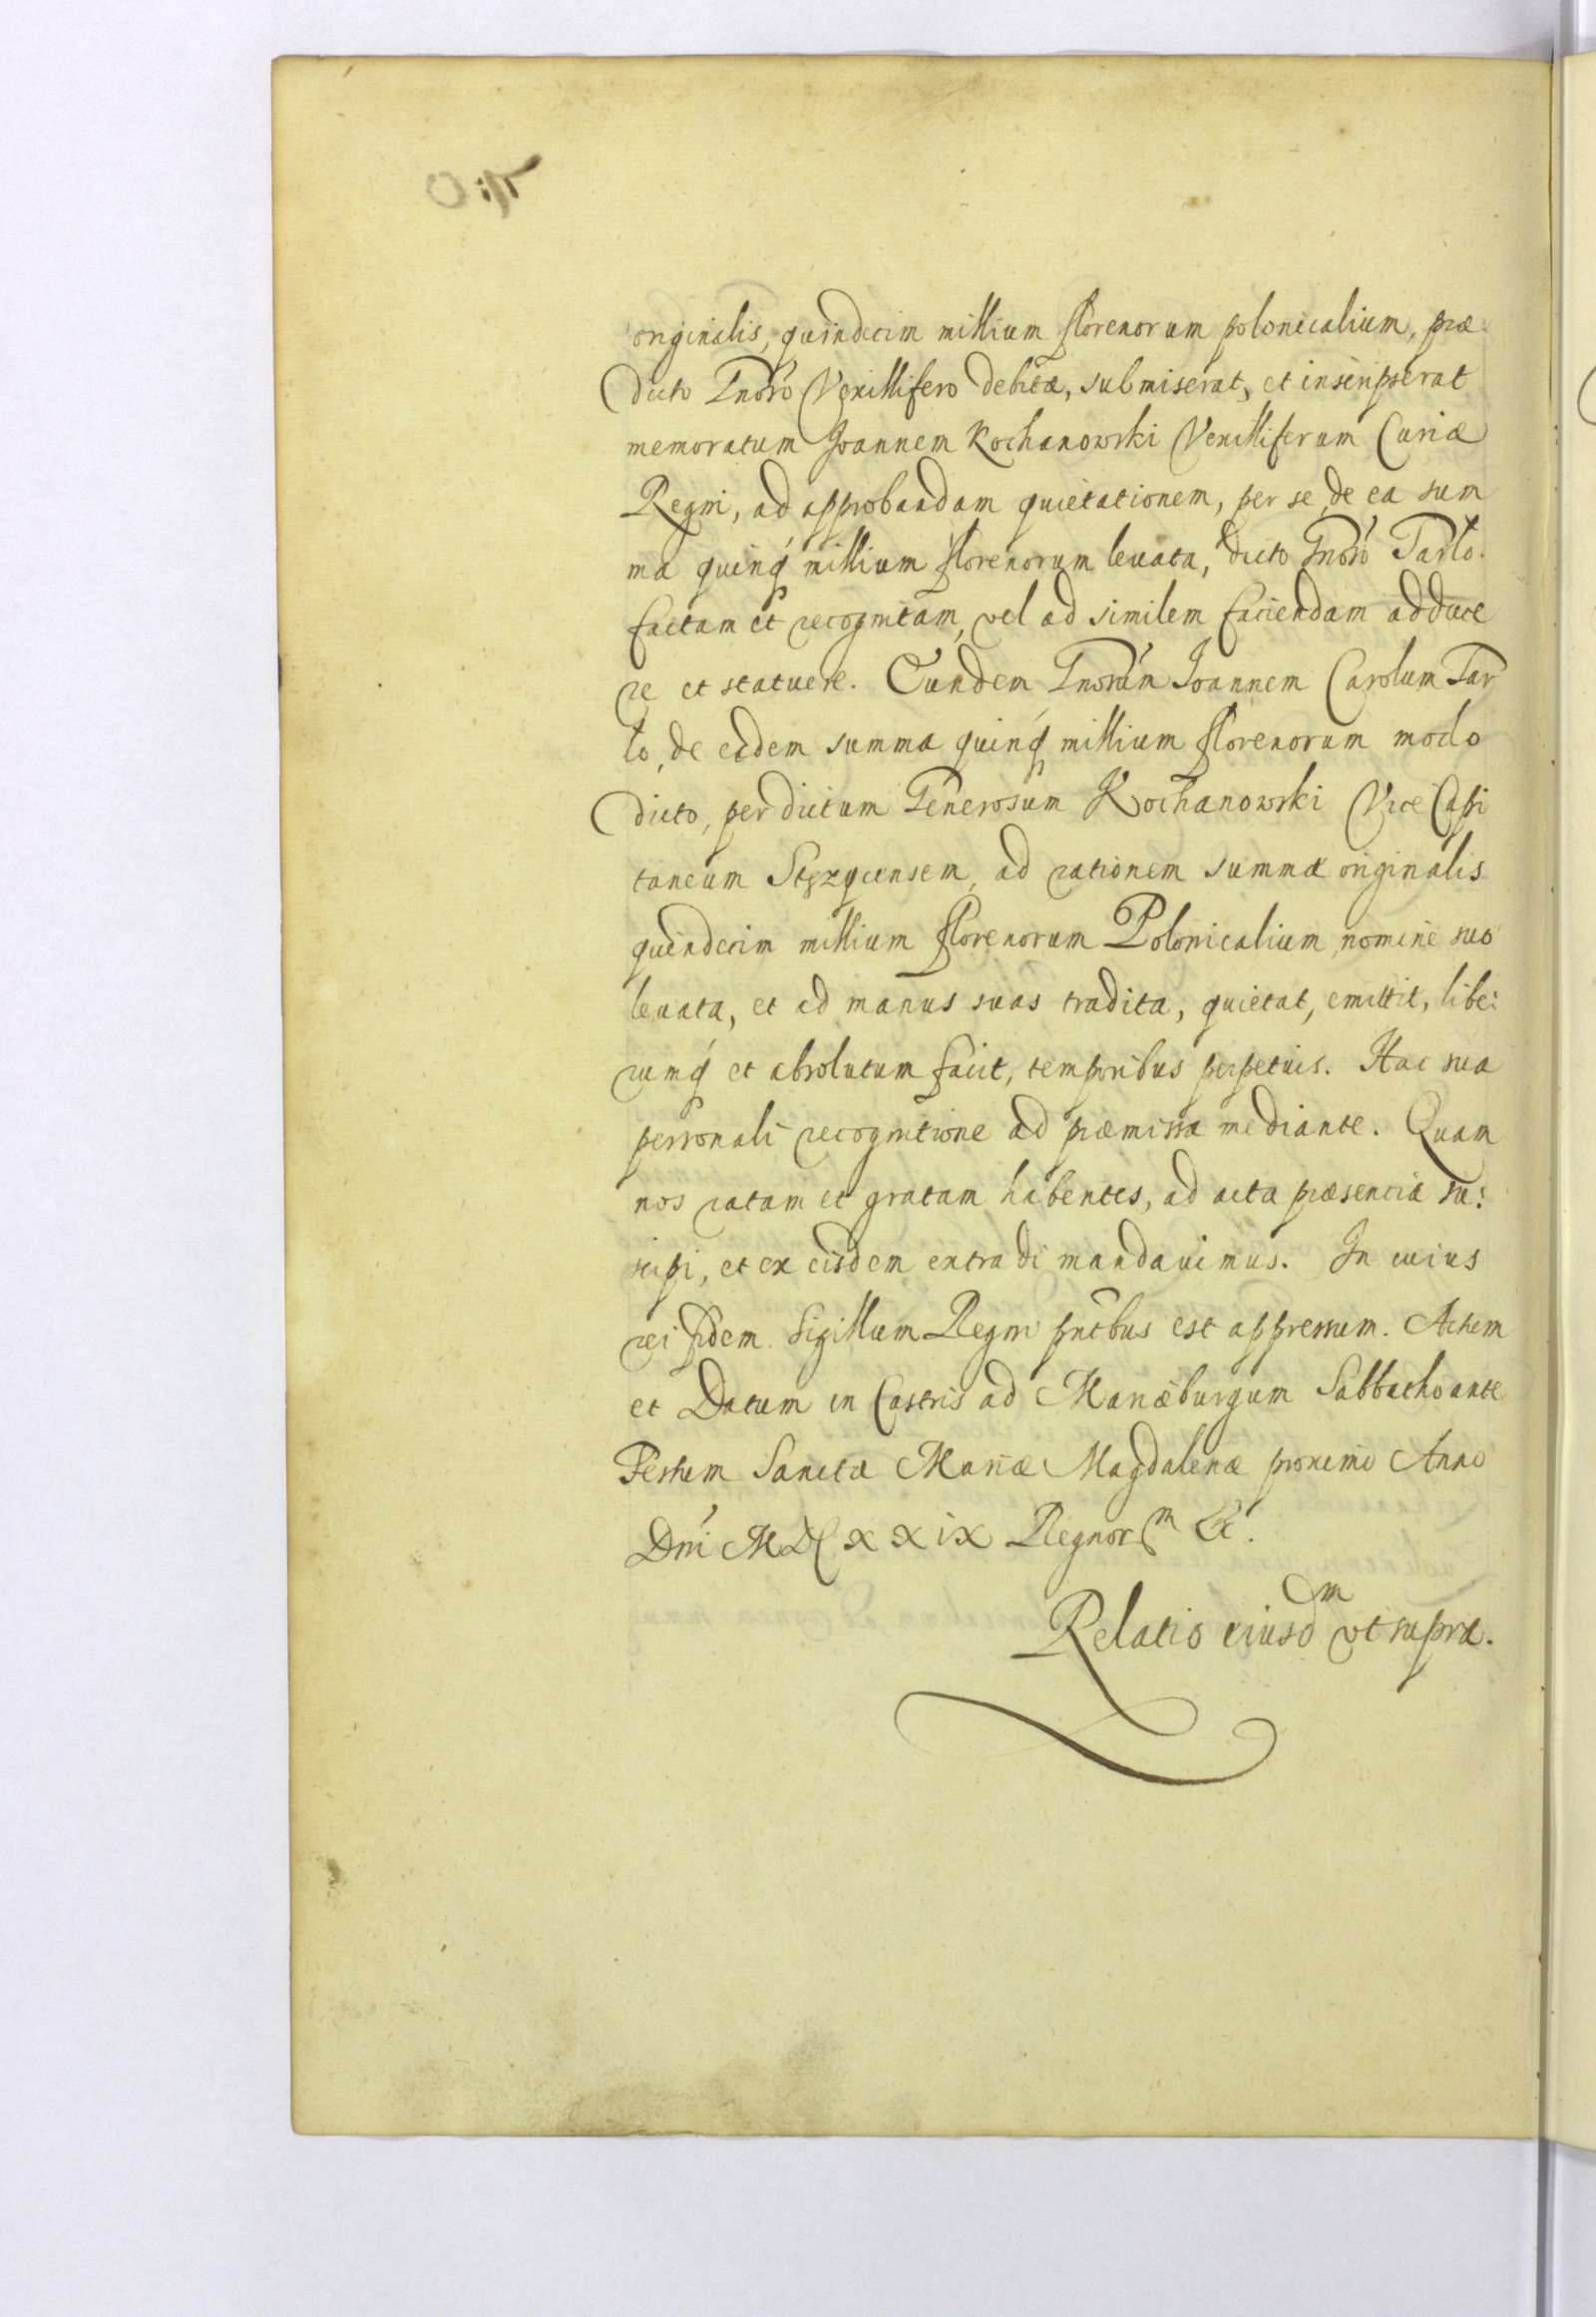 originalis, quindecim millium florenorum polonicalium, præ
dicto Gnoso Vexillifero debitæ, submiserat, et inscripserat
memoratum Joannem Kochanowski Vexilliferum Curiæ
Regni, ad approbandam quietationem, per se, de ea sum
ma quinq millium florenorum levata, dicto Gnoso Tarlo.
factam et recognitam, vel ad similem faciendam adduce
re et statuere. Eundem Gnosum Joannem Carolum Tar
lo, de eadem summa quinq millium florenorum modo
dicto, per dictum Generosum Kochanowski Vice Capi
taneum Stęzycensem, ad rationem summæ originalis
quindecim millium florenorum Polonicalium nomine suo
levata, et ad manus suas tradita, quietat, emittit, libe:
rumq et absolutum facit, temporibus perpetuis. Hac sua
personali recognitione ad præmissa mediante. Quam
nos ratam et gratam habentes, ad acta præsentia su:
scipi, et ex eisdem extradi mandavimus. In cuius
rei fidem Sigillum Regni pntbus est appressum. Actum
et Datum in Castris ad Mariæburgum Sabbatho ante
Festum Sanctæ Mariæ Magdalenæ proximo Anno
Dni MDCXXIX Regnorm &c.
Relatio eiusdm ut supra.